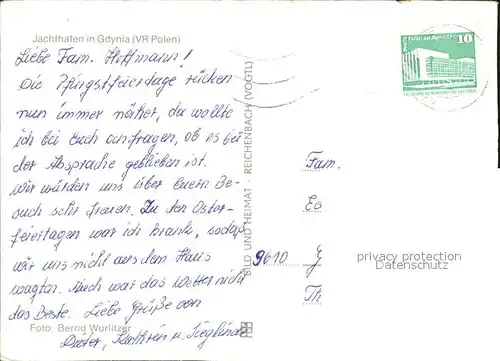 Jachthafen in Gdynia (VR Polen)
Liebe Fam. Hoffmann!
Die Pfingstfeiertage rücken
nun immer näher, da wollte
ich bei Euch anfragen, ob es bei
der Absprache geblieben ist.
Wir würden uns über Euern Be-
such sehr freuen. Zu den Oster-
feiertagen war ich krank, sodaß
wir uns nicht aus dem Haus
wagten. Auch war das Wetter nicht
das Beste. Liebe Grüße von
Dieter, Kathrein u. Sieglinde
Foto: Bernd Wurlitzer
BILD UND HEIMAT · REICHENBACH (VOGTL)
10
Fam.
9610 G
Th
privacy protection
Datenschutz